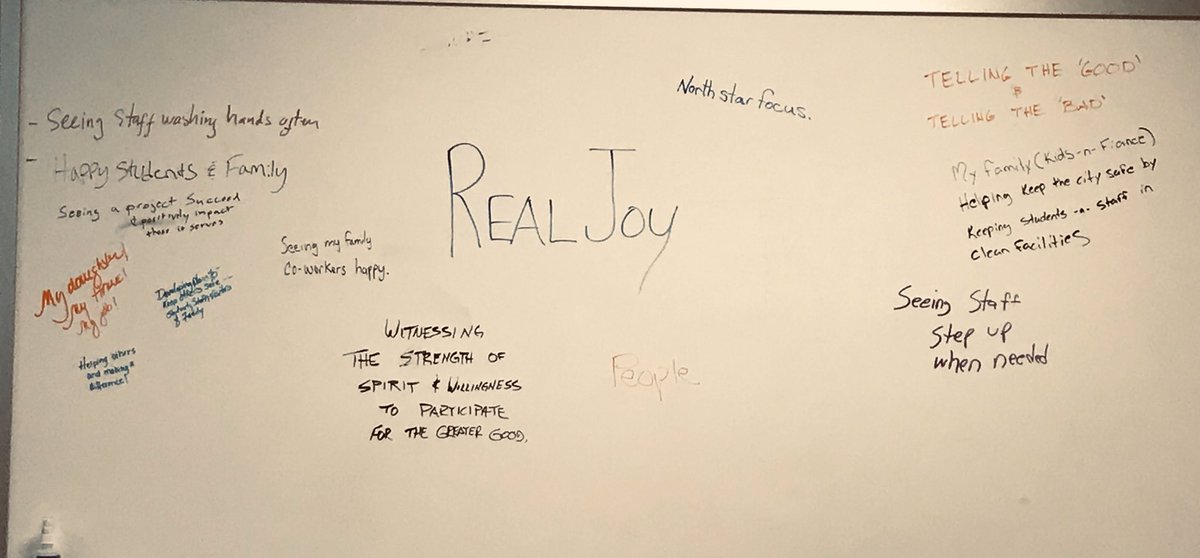 - Seeing Staff washing hands often
- Happy Students & Family
Seeing a project Succeed
& positively impact
those it serves
My daughter!
My fiance!
My job!
Keep
safe
& Family
Helping others
and making a
difference!
Seeing my family
Co-workers happy.
REAL JOY
WITNESSING
THE STRENGTH OF
SPIRIT & WILLINGNESS
TO PARTICIPATE
FOR THE GREATER GOOD.
People
North star focus.
TELLING THE 'GOOD'
&
TELLING THE 'BAD'
My family (Kids-n-Fiance)
Helping Keep the city safe by
Keeping Students -n- Staff in
Clean Facilities
Seeing Staff
Step up
when needed